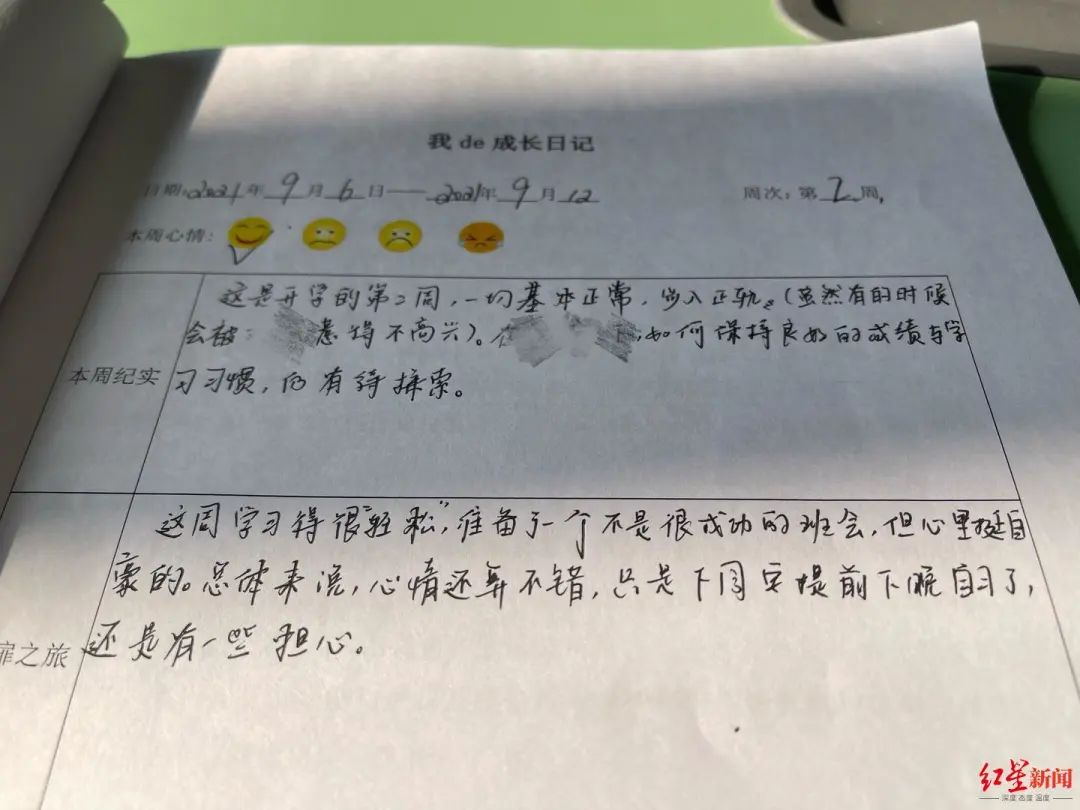 我de成长日记
日期:2021年9月6日——2021年9月12 周次:第2周,
本周心情:
这是开学的第2周,一切基本正常,步入正轨。(虽然有的时候
会被: 惹得不高兴)。 如何保持良好的成绩与学
本周纪实 习习惯,仍有待探索。
这周学习得很"轻松",准备了一个不是很成功的班会,但心里挺自
豪的。总体来说,心情还算不错,只是下周要提前下晚自习了,
扉之旅 还是有一些担心。
红星新闻
深度 态度 温度